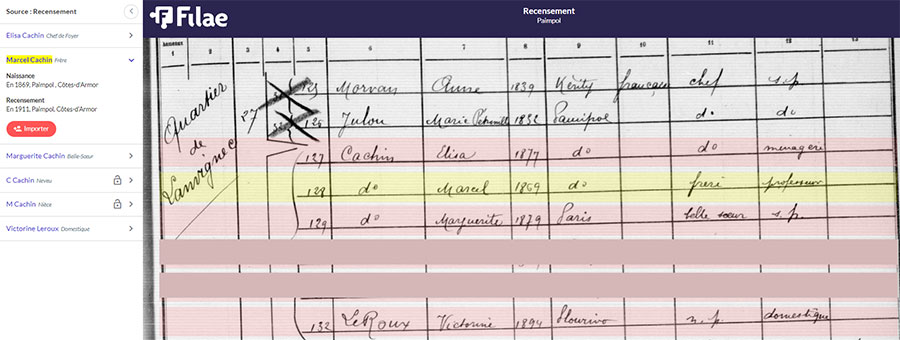 Source : Recensement
Elisa Cachin Chef de Foyer
Marcel Cachin Frère
Naissance
En 1869, Paimpol , Côtes-d'Armor
Recensement
En 1911, Paimpol, Côtes-d'Armor
Importer
Marguerite Cachin Belle-Soeur
C Cachin Neveu
M Cachin Nièce
Victorine Leroux Domestique
Filae
Recensement
Paimpol
1 2 3 4 5 6 7 8 9 10 11 12 13
Quartier
de
Lanvignec
27
125 Morvan Anne 1839 Kérity française chef s.p.
126 Julou Marie 1832 Paimpol do do
127 Cachin Elisa 1877 do do menagère
128 do Marcel 1869 do frère professeur
129 do Marguerite 1879 Paris belle sœur s.p.
132 LeRoux Victorine 1894 Plourivo n.p. domestique